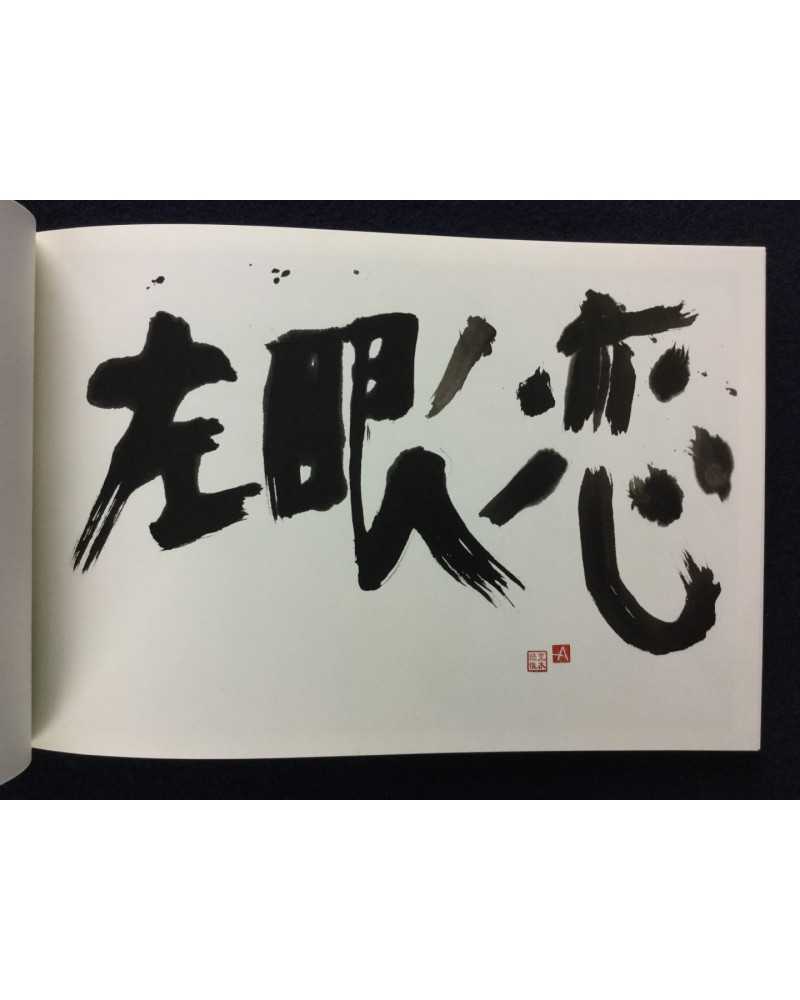 左眼ノ恋
A